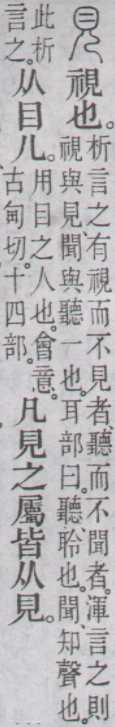 見視也。
析言之有視而不見者、聽而不聞者。渾言之則
視與見聞與聽一也。耳部曰。聽聆也。聞、知聲也。
此析
言之。
从目儿。
用目之人也。會意。
古甸切。十四部。
凡見之屬皆从見。